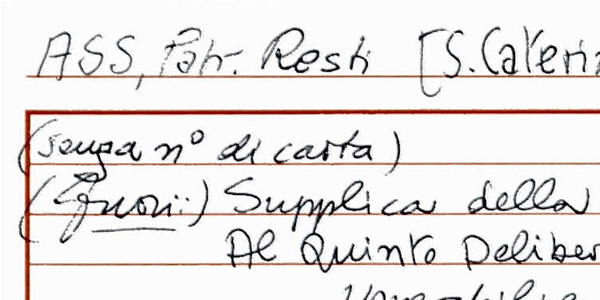 ASS, Patr. Resti [S. Caterin
(senza n° di carta)
(fuori:) Supplica della
Al Quinto Deliber